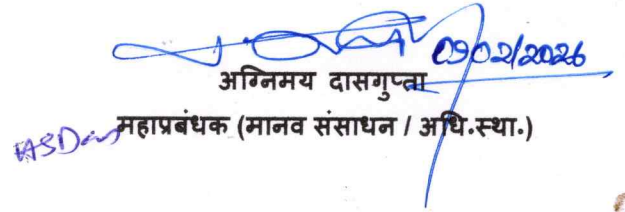 09/02/2026
अग्निमय दासगुप्ता
महाप्रबंधक (मानव संसाधन / अधि.स्था.)